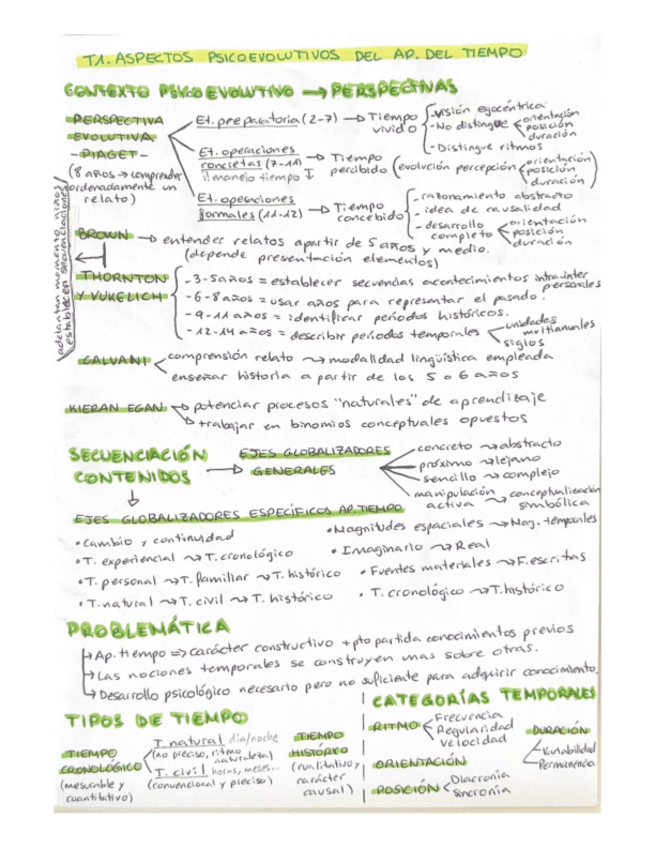 T1. ASPECTOS PSICOEVOLUTIVOS DEL AP. DEL TIEMPO
CONTEXTO PSICOEVOLUTIVO → PERSPECTIVAS
PERSPECTIVA EVOLUTIVA -PIAGET-
(8 años → comprender ordenadamente un relato)
Et. preparatoria (2-7) → Tiempo vivido
- visión egocéntrica
- No distingue
orientación
posición
duración
- Distingue ritmos
Et. operaciones concretas (7-11) → Tiempo percibido (evolución percepción
orientación
posición
duración)
¡! manejo tiempo ↓
Et. operaciones formales (11-12) → Tiempo concebido
- razonamiento abstracto
- idea de causalidad
- desarrollo completo
orientación
posición
duración
BROWN → entender relatos apartir de 5 años y medio.
(depende presentación elementos)
adelantan momento niños establecen secuenciaciones
THORNTON Y VUKELICH
- 3-5 años = establecer secuencias acontecimientos intra-inter personales
- 6-8 años = usar años para representar el pasado.
- 9-11 años = identificar períodos históricos.
- 12-14 años = describir períodos temporales
unidades multianuales
siglos
CALVANI
comprensión relato ⇝ modalidad lingüística empleada
enseñar historia a partir de los 5 o 6 años
KIERAN EGAN
→ potenciar procesos "naturales" de aprendizaje
→ trabajar en binomios conceptuales opuestos
SECUENCIACIÓN CONTENIDOS → EJES GLOBALIZADORES GENERALES
concreto ⇝ abstracto
próximo ⇝ lejano
sencillo ⇝ complejo
manipulación activa ⇝ conceptualización simbólica
EJES GLOBALIZADORES ESPECÍFICOS AP. TIEMPO
• Cambio y continuidad
• Magnitudes espaciales ⇝ Mag. temporales
• T. experiencial ⇝ T. cronológico
• Imaginario ⇝ Real
• T. personal ⇝ T. familiar ⇝ T. histórico
• Fuentes materiales ⇝ F. escritas
• T. natural ⇝ T. civil ⇝ T. histórico
• T. cronológico ⇝ T. histórico
PROBLEMÁTICA
↳ Ap. tiempo ⇒ carácter constructivo + pto partida conocimientos previos
↳ Las nociones temporales se construyen unas sobre otras.
↳ Desarrollo psicológico necesario pero no suficiente para adquirir conocimiento.
TIPOS DE TIEMPO
TIEMPO CRONOLÓGICO
(mesurable y cuantitativo)
T. natural día/noche
(no preciso, ritmo naturaleza)
T. civil horas, meses...
(convencional y preciso)
TIEMPO HISTÓRICO
(cualitativo y carácter causal)
CATEGORÍAS TEMPORALES
RITMO
Frecuencia
Regularidad
Velocidad
DURACIÓN
Variabilidad
Permanencia
ORIENTACIÓN
POSICIÓN
Diacronía
Sincronía